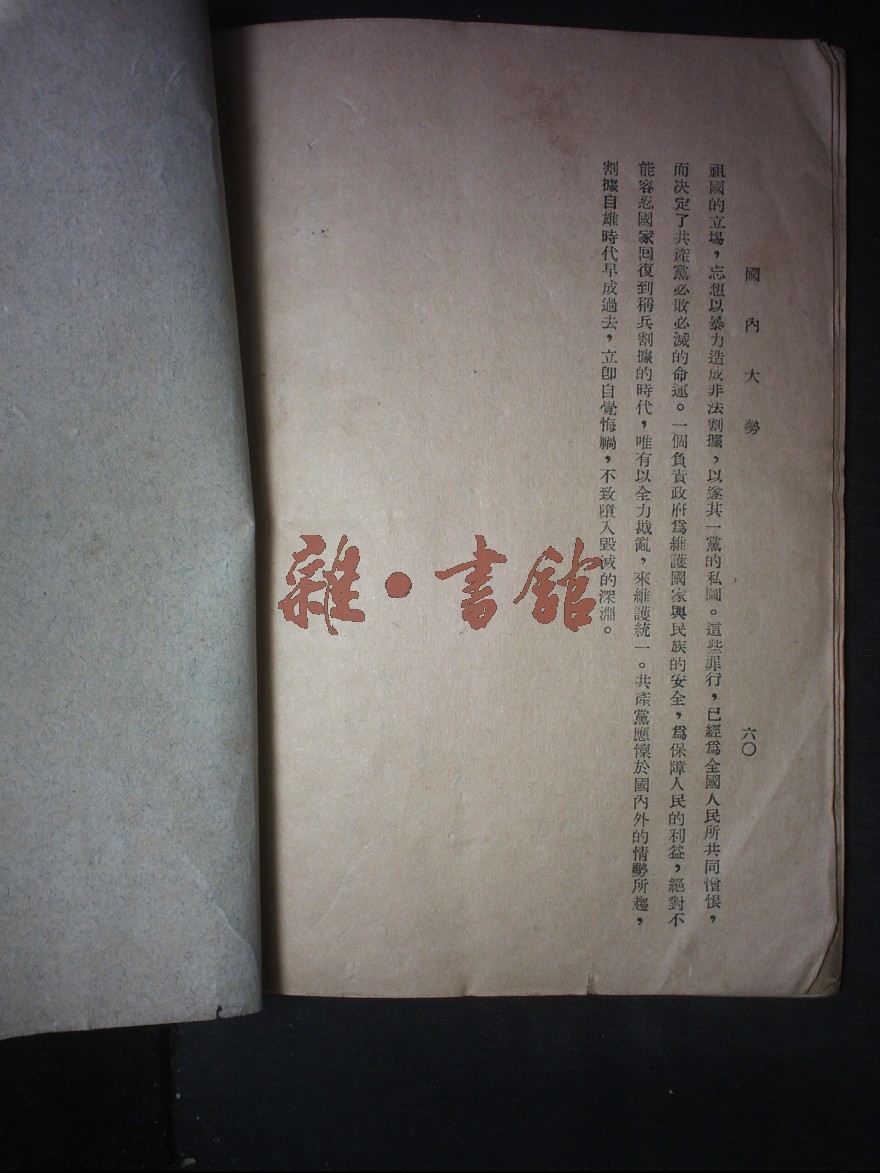 國內大勢
六〇
祖國的立場，忘想以暴力造成非法割據，以遂其一黨的私圖。這些罪行，已經爲全國人民所共同憎恨，
而决定了共產黨必敗必滅的命運。一個負責政府爲維護國家與民族的安全，爲保障人民的利益，絕對不
能容忍國家回復到稱兵割據的時代，唯有以全力戡亂，來維護統一。共產黨應懍於國內外的情勢所趨，
割據自雄時代早成過去，立卽自覺悔禍，不致墮入毀滅的深淵。
雜·書館